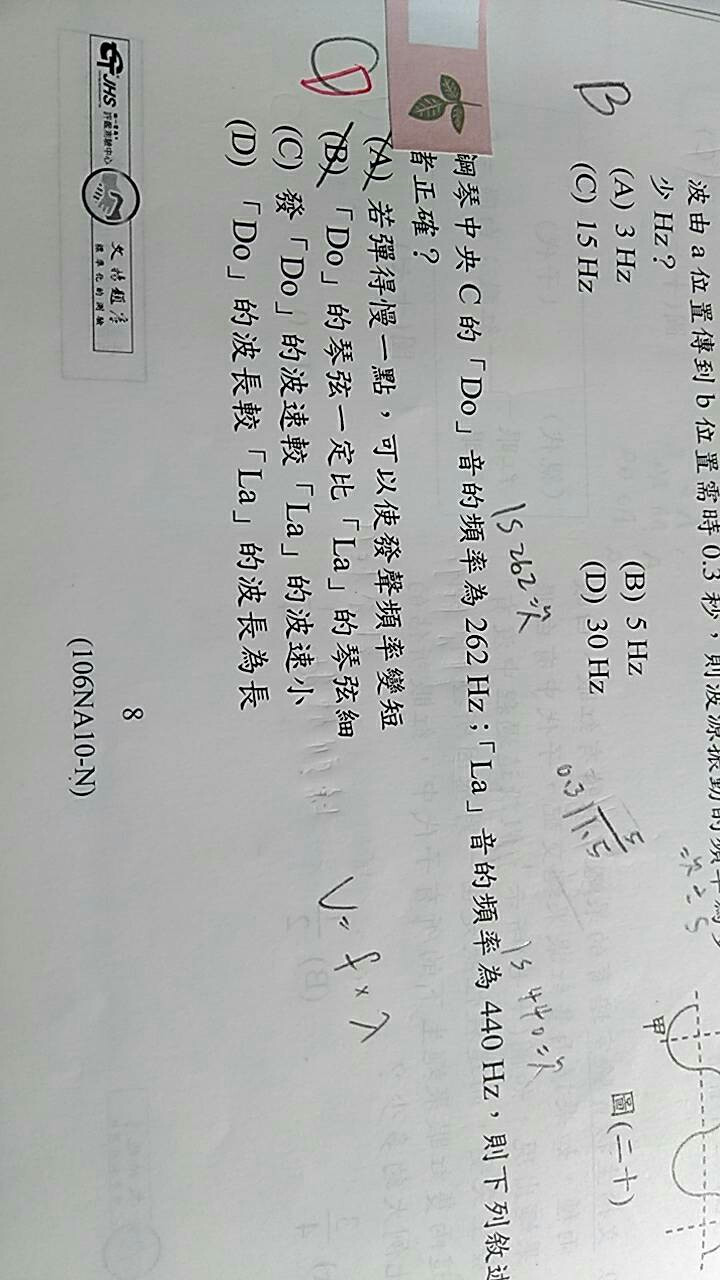 波由 a 位置傳到 b 位置需時 0.3 秒，則波源振動的頻率為多
少 Hz？
=次 = 5
B
(A) 3 Hz (B) 5 Hz
(C) 15 Hz (D) 30 Hz
0.3 1.5 5
甲
圖(二十)
1s 262=次 1s 440=次
鋼琴中央 C 的「Do」音的頻率為 262 Hz；「La」音的頻率為 440 Hz，則下列敘述
者正確？
C D
(A) 若彈得慢一點，可以使發聲頻率變短
(B) 「Do」的琴弦一定比「La」的琴弦細
(C) 發「Do」的波速較「La」的波速小
(D) 「Do」的波長較「La」的波長為長
V = f × λ
8
(106NA10-N)
JHS
評鑑測驗中心
標準化的測驗